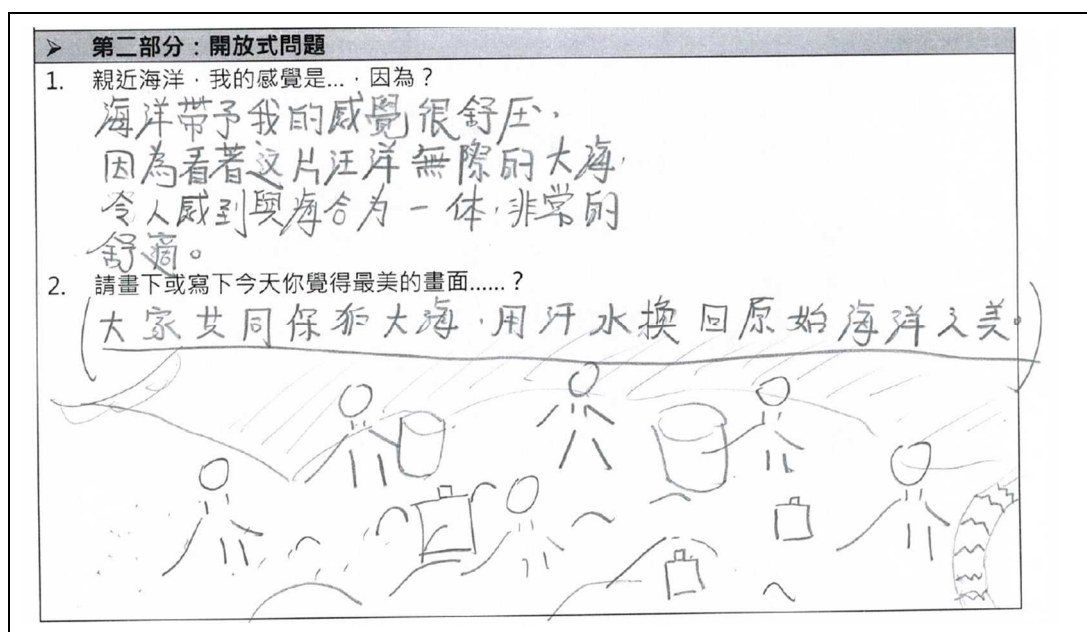 ➢ 第二部分：開放式問題
1. 親近海洋，我的感覺是...，因為？
海洋帶予我的感覺很舒压，
因為看著这片汪洋無際的大海，
令人感到與海合为一体，非常的
舒適。
2. 請畫下或寫下今天你覺得最美的畫面......？
(大家共同保護大海，用汗水換回原始海洋之美。)